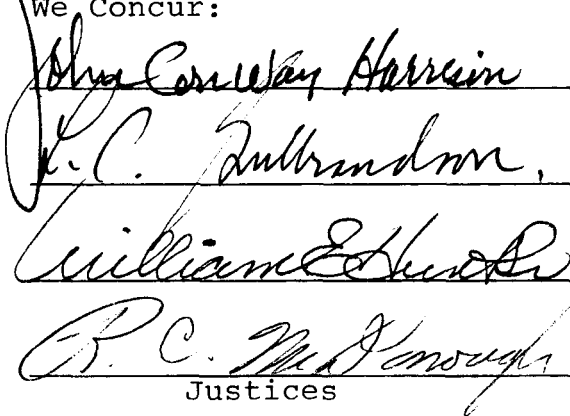 We Concur:
John Conway Harrison
L. C. Gulbrandson.
William E Hunt Sr
R. C. McDonough
Justices